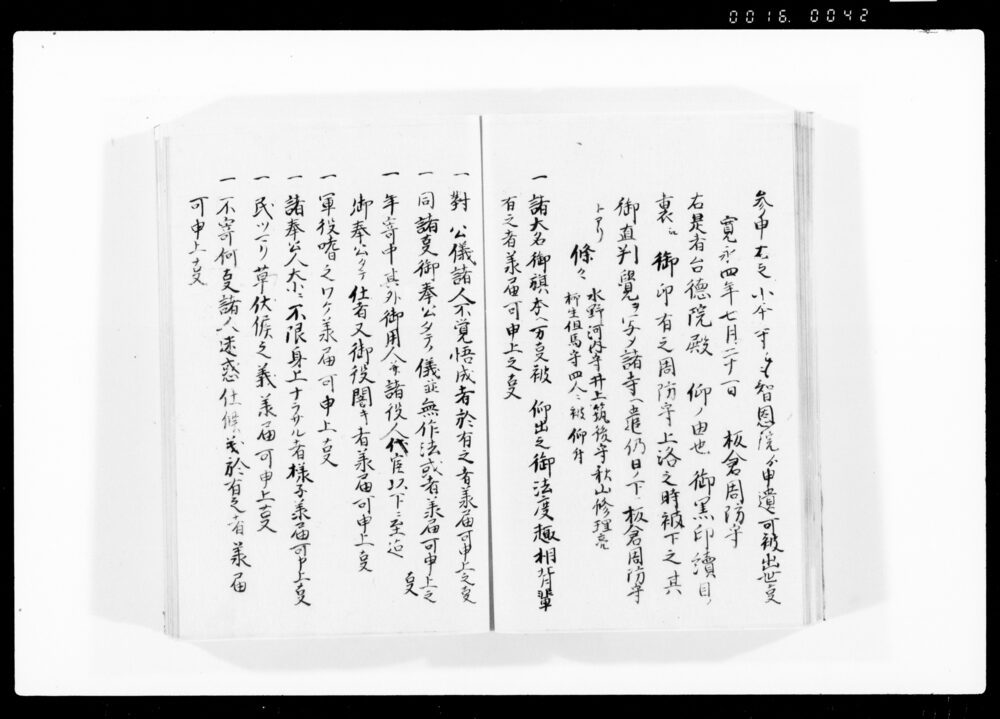 0016. 0042
参申尤之小本寺ニ而も智恩院ゟ申遣可被出世夏
寛永四年七月二十一日　板倉周防守
右是者台徳院殿　仰ノ由也　御黒印續目ノ
裏ニ　御印有之周防守上洛之時被下之其
御直判覺ヲ写ノ諸寺ヘ遣仍日ノ下ニ板倉周防守
トアリ
條々　水野河内守井上筑後守秋山修理亮
柳生但馬守四人ニ被　仰付
一　諸大名御旗本ヘ万夏被　仰出之御法度趣相背輩
有之者義届可申上之夏
一　對　公儀諸人不覚悟成者於有之者義届可申上之夏
一　同諸夏御奉公タテノ儀並無作法或者義届可申上之
夏
一　年寄中其外御用人並諸役人代官以下ニ至迄
御奉公タテ仕者又御役闇キ者義届可申上夏
一　軍役嗜之ワケ義届可申上夏
一　諸奉公人大小ニ不限身上ナラサル者様子義届可申上夏
一　民ツマリ草伏候之義義届可申上夏
一　不寄何夏諸人迷惑仕候義於有之者義届
可申上夏